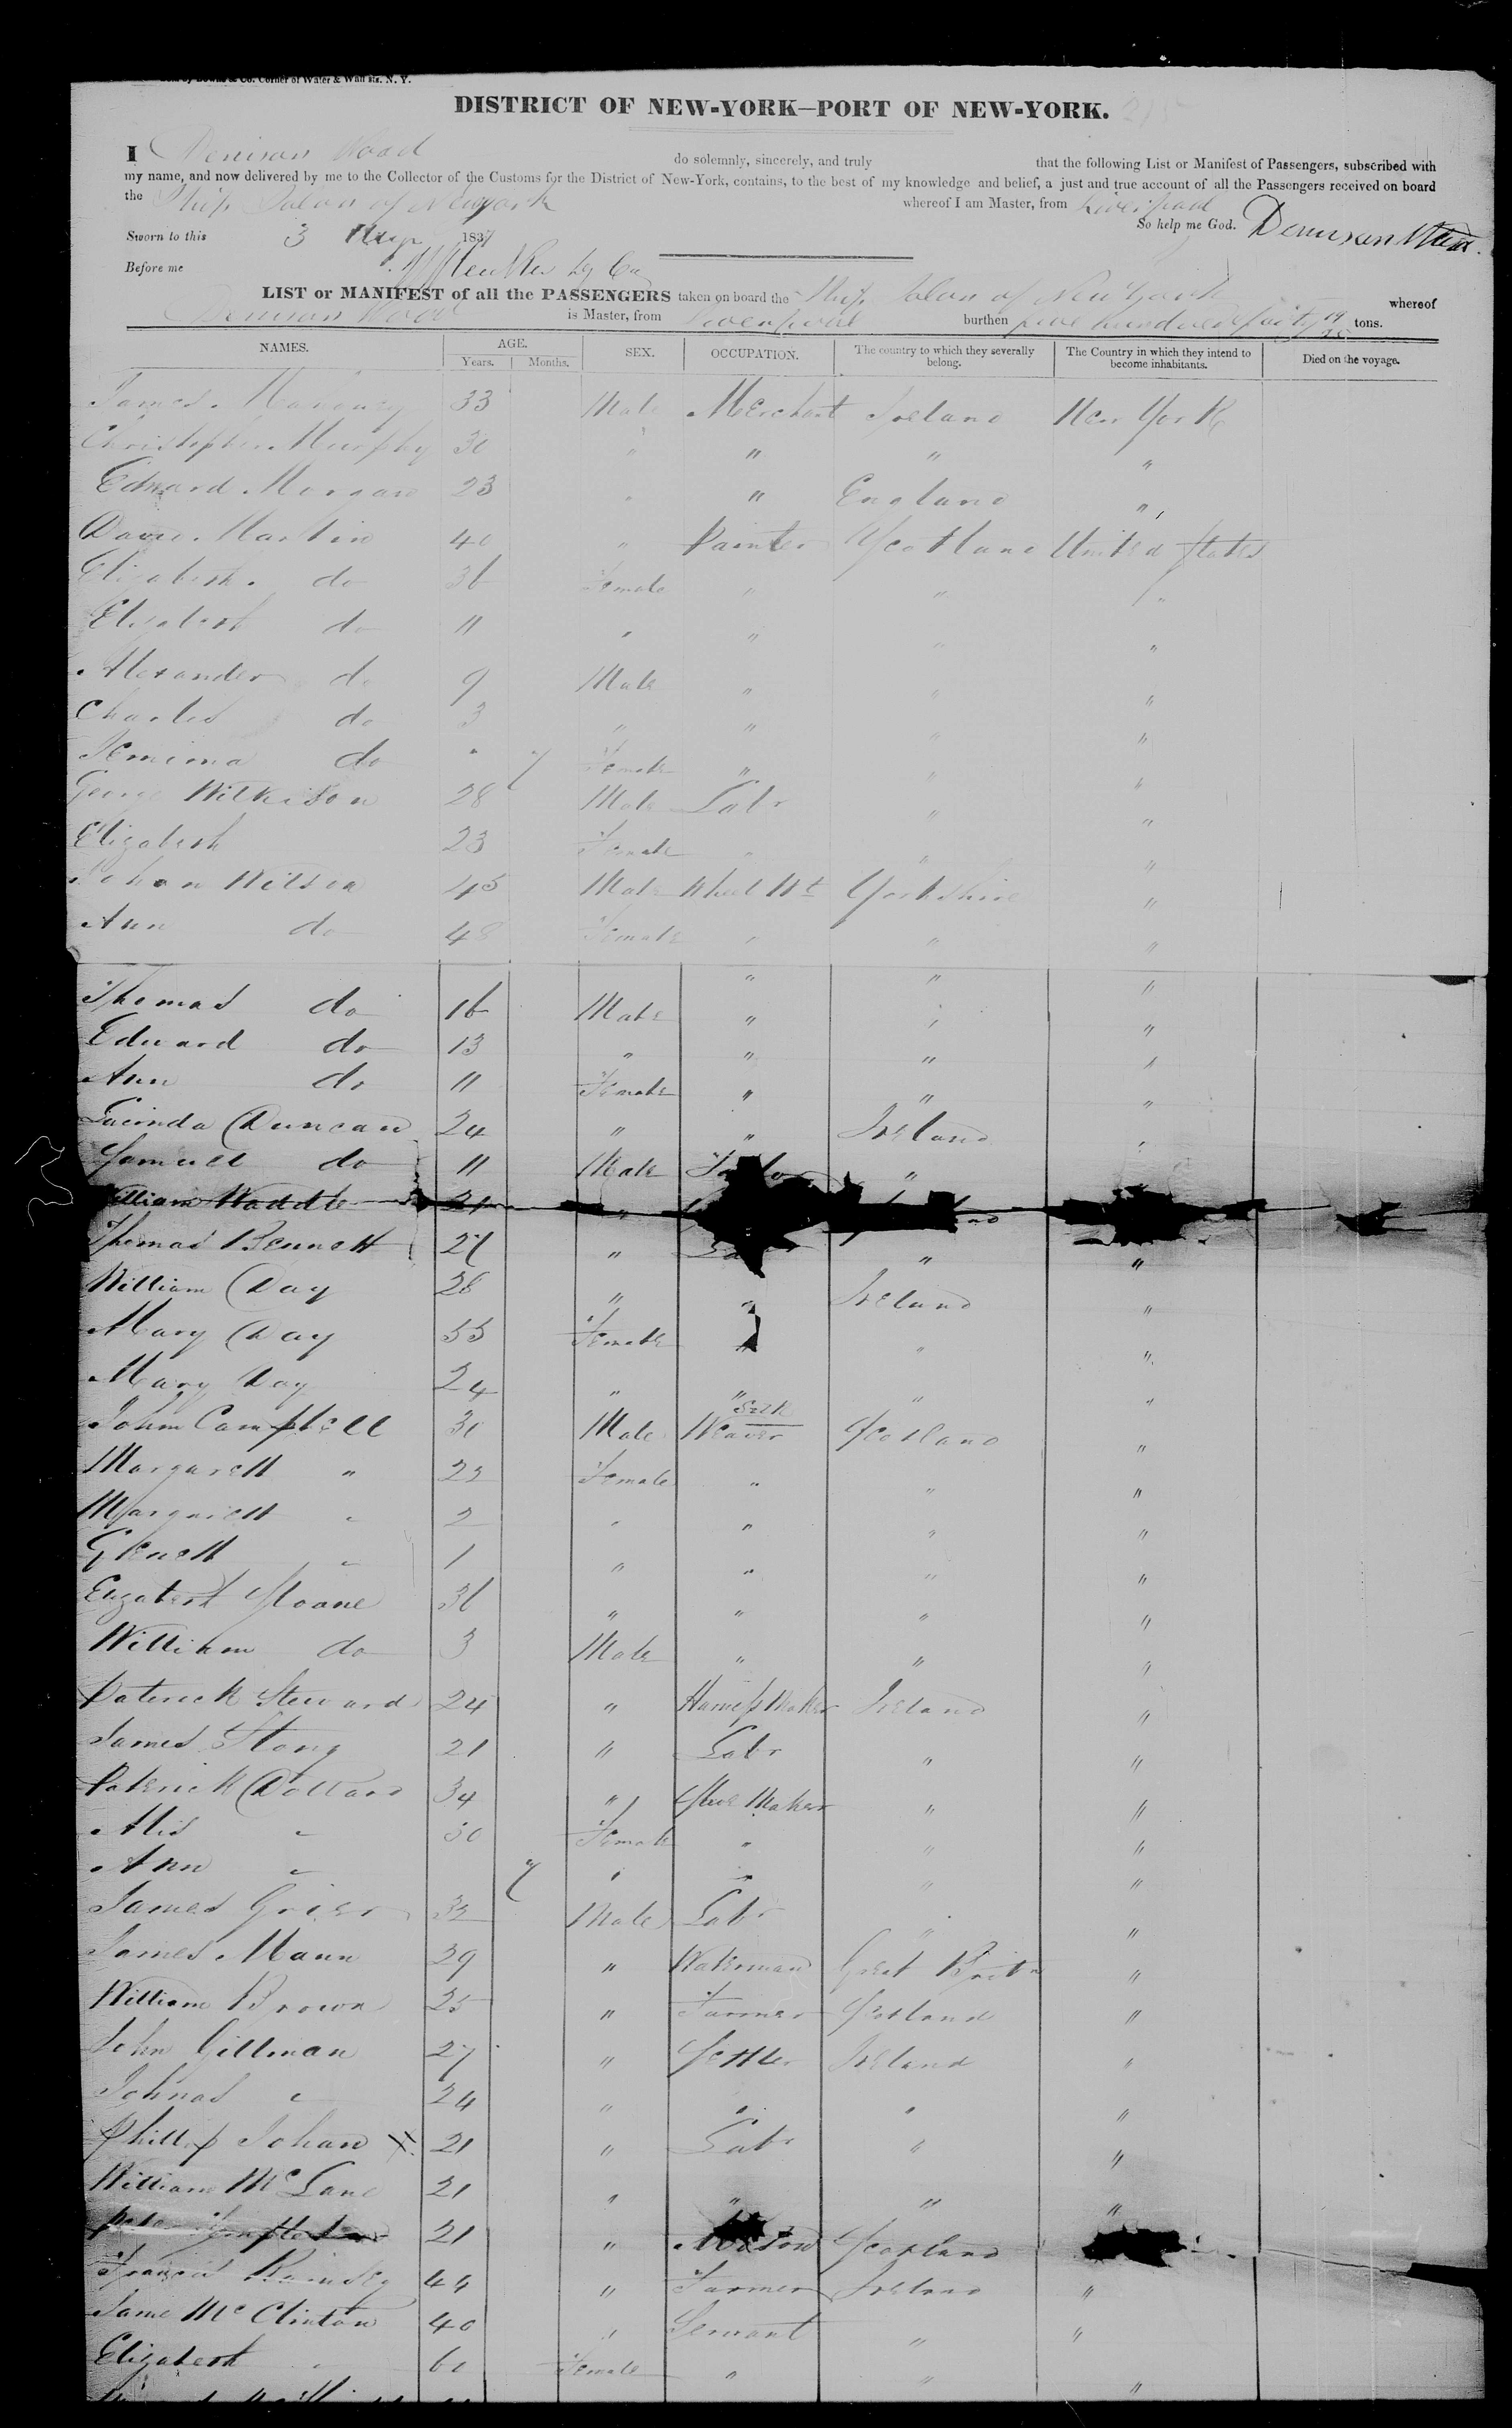 & Co. Corner of Water & Wall sts. N. Y.
DISTRICT OF NEW-YORK—PORT OF NEW-YORK.
I Denison Wood do solemnly, sincerely, and truly that the following List or Manifest of Passengers, subscribed with
my name, and now delivered by me to the Collector of the Customs for the District of New-York, contains, to the best of my knowledge and belief, a just and true account of all the Passengers received on board
the Ship Solon of New York whereof I am Master, from Liverpool
So help me God. Denison Wood.
Sworn to this 3 1837
Before me
LIST or MANIFEST of all the PASSENGERS taken on board the Ship Solon of New York whereof
Denison Wood is Master, from Liverpool burthen five hundred forty 19 tons.
NAMES. AGE. SEX. OCCUPATION. The country to which they severally belong. The Country in which they intend to become inhabitants. Died on the voyage.
Years. Months.
James 33 Male Merchant Ireland New York
Christopher Murphy 30 " " " "
Edward Morgan 23 " " England "
David Martin 40 " Painter Scotland United States
Elizabeth do 36 Female " " "
Elizabeth do 11 " " " "
Alexander do 9 Male " " "
Charles do 3 " " " "
Jemima do " 7 Female " " "
George Wilkison 28 Male Labr " "
Elizabeth 23 Female " " "
Johan Wilson 45 Male Wheel Wt Yorkshire "
Ann do 48 Female " " "
Thomas do 16 Male " " "
Edward do 13 " " " "
Ann do 11 Female " " "
Lucinda Duncan 24 " " Ireland "
Samuel do 11 Male "
William Waddle 21 "
Thomas Bennett 27 " " "
William Day 28 " " Ireland "
Mary Day 55 Female " "
Mary Day 24 " " " "
John Campbell 30 Male Silk Weaver Scotland "
Margarett " 23 Female " " "
Margarett " 2 " " " "
" 1 " " " "
Elizabeth Sloane 36 " " " "
William do 3 Male " " "
Paterick Steward 24 " Harness Maker Ireland "
James Stong 21 " Labr " "
Paterick Dollard 34 " Shoe Maker " "
Alis " 30 Female " " "
Ann " 7 " " " "
James Grier 32 Male Labr " "
James Mann 39 " Waterman Great Britn "
William Brown 25 " Farmer Scotland "
John Gillman 27 " Ireland "
Johnas " 24 " " " "
Phillip Johan X 21 " Labr " "
William McLane 21 " " " "
21 " Mason Scotland
Francis Ramsey 44 " Farmer Ireland "
Jame McClinton 40 " Servant " "
Elizabeth " 60 Female " " "